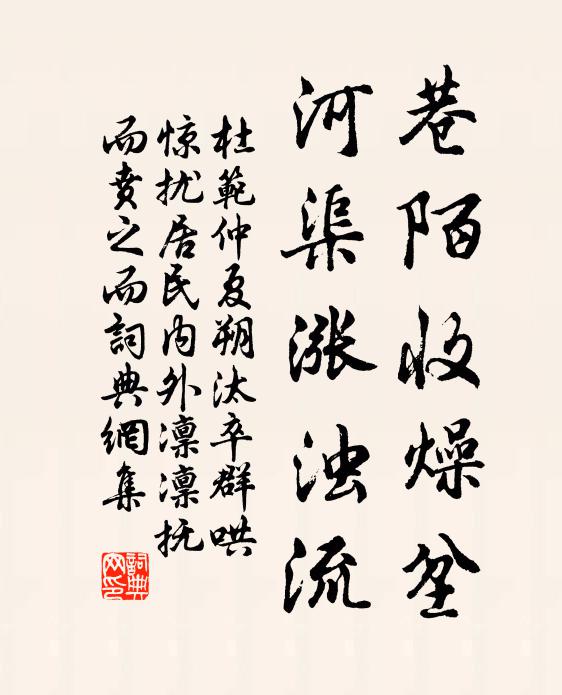 巷陌收燥坌
河渠涨浊流
杜範仲夏朔汰卒群哄
惊扰居民内外凛凛抚
而贲之而詞典網集
詞典网印